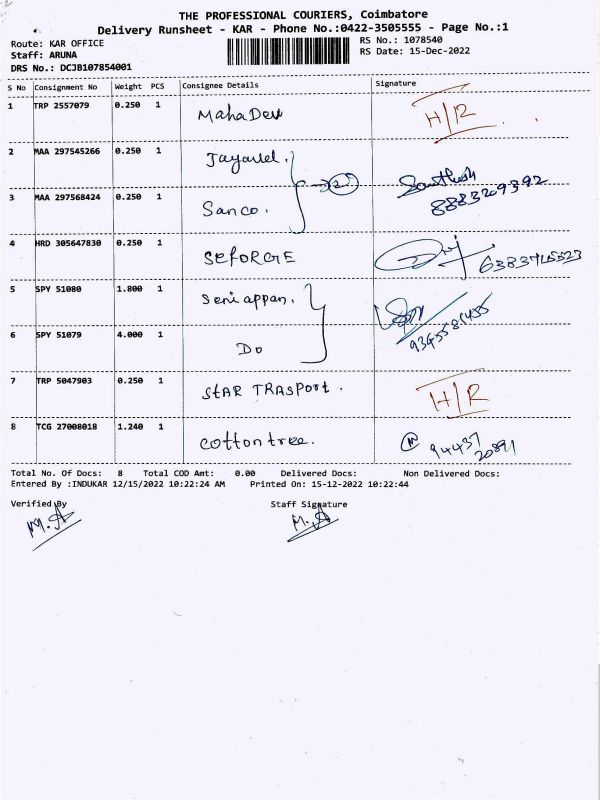 THE PROFESSIONAL COURIERS, Coimbatore
Delivery Runsheet - KAR - Phone No.:0422-3505555 - Page No.:1
Route: KAR OFFICE
RS No.: 1078540
Staff: ARUNA
RS Date: 15-Dec-2022
DRS No.: DCJB107854001
S No Consignment No Weight PCS Consignee Details Signature
1 TRP 2557079 0.250 1 MahaDev H/R
2 MAA 297545266 0.250 1
3 MAA 297568424 0.250 1 Sanco. 8883209392
4 HRD 305647830 0.250 1 SEFORGE
5 SPY 51080 1.800 1 Seniappan.
6 SPY 51079 4.000 1 Do
7 TRP 5047903 0.250 1 STAR TRASPORT. H/R
8 TCG 27008018 1.240 1 Cottontree. 94437 20891
Total No. Of Docs: 8 Total COD Amt: 0.00 Delivered Docs: Non Delivered Docs:
Entered By :INDUKAR 12/15/2022 10:22:24 AM Printed On: 15-12-2022 10:22:44
Verified By Staff Signature